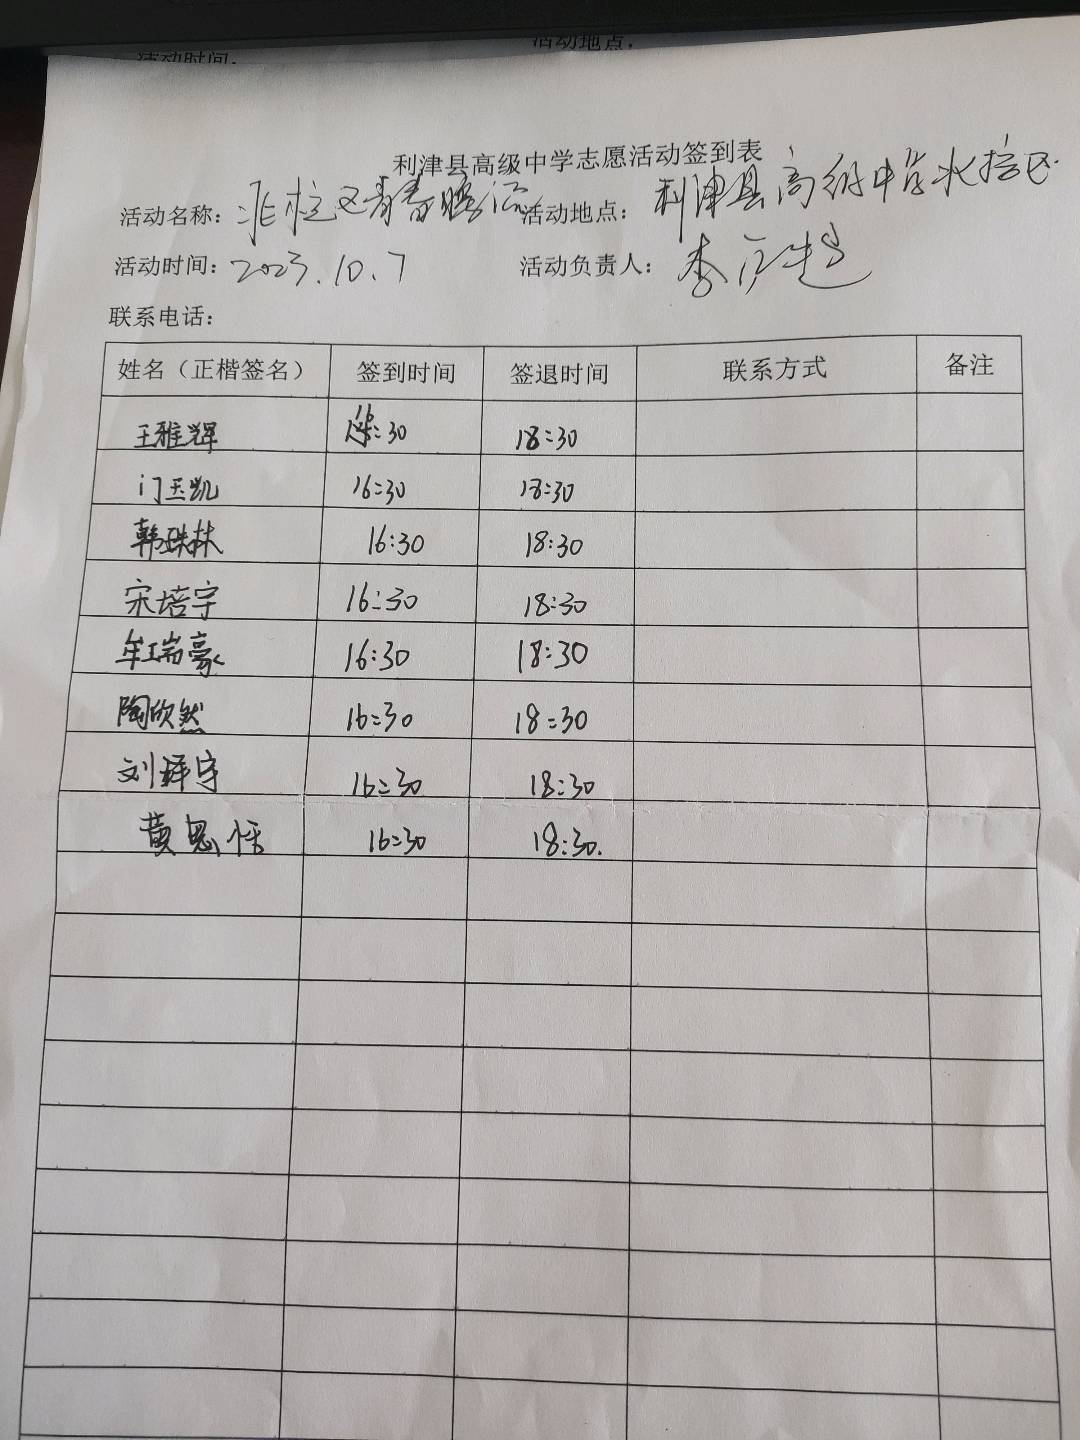 活动地点：
活动时间：
利津县高级中学志愿活动签到表
活动名称： 活动地点：利津县高级中学
活动时间：2023.10.7 活动负责人：李
联系电话：
姓名（正楷签名） 签到时间 签退时间 联系方式 备注
王雅辉 16:30 18:30
门玉凯 16:30 18:30
韩珠林 16:30 18:30
宋培宇 16:30 18:30
牟瑞豪 16:30 18:30
陶欣然 16:30 18:30
刘泽宇 16:30 18:30
黄思恬 16:30 18:30.